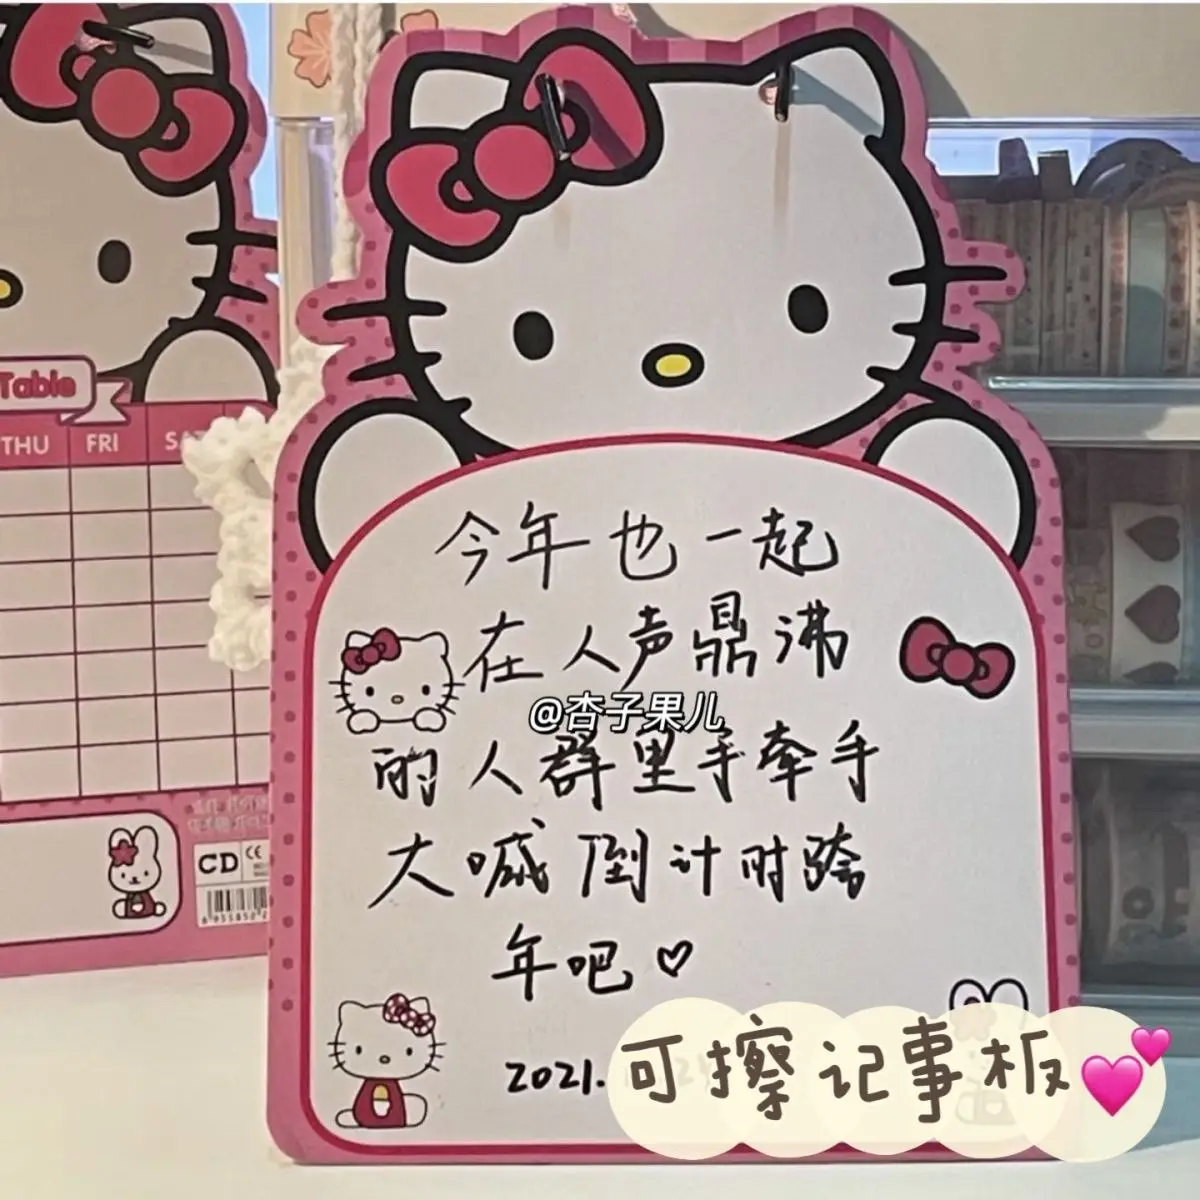 Table
THU FRI
今年也一起
在人声鼎沸
@杏子果儿
的人群里手牵手
大喊倒计时跨
年吧♡
2021.
可擦记事板💕
CD CE